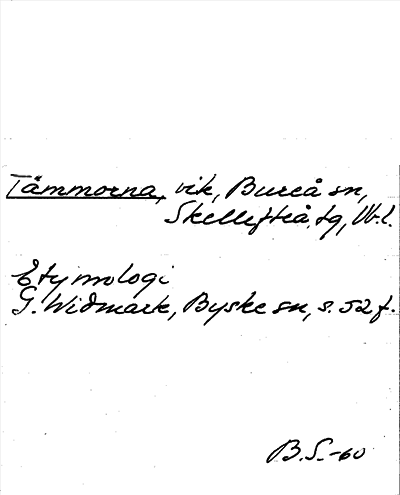 Tämmorna, vik, Bureå sn,
Skellefteå tg, Vb. l.
Etymologi
G. Widmark, Byske sn, s. 52 f.
B.S.-60